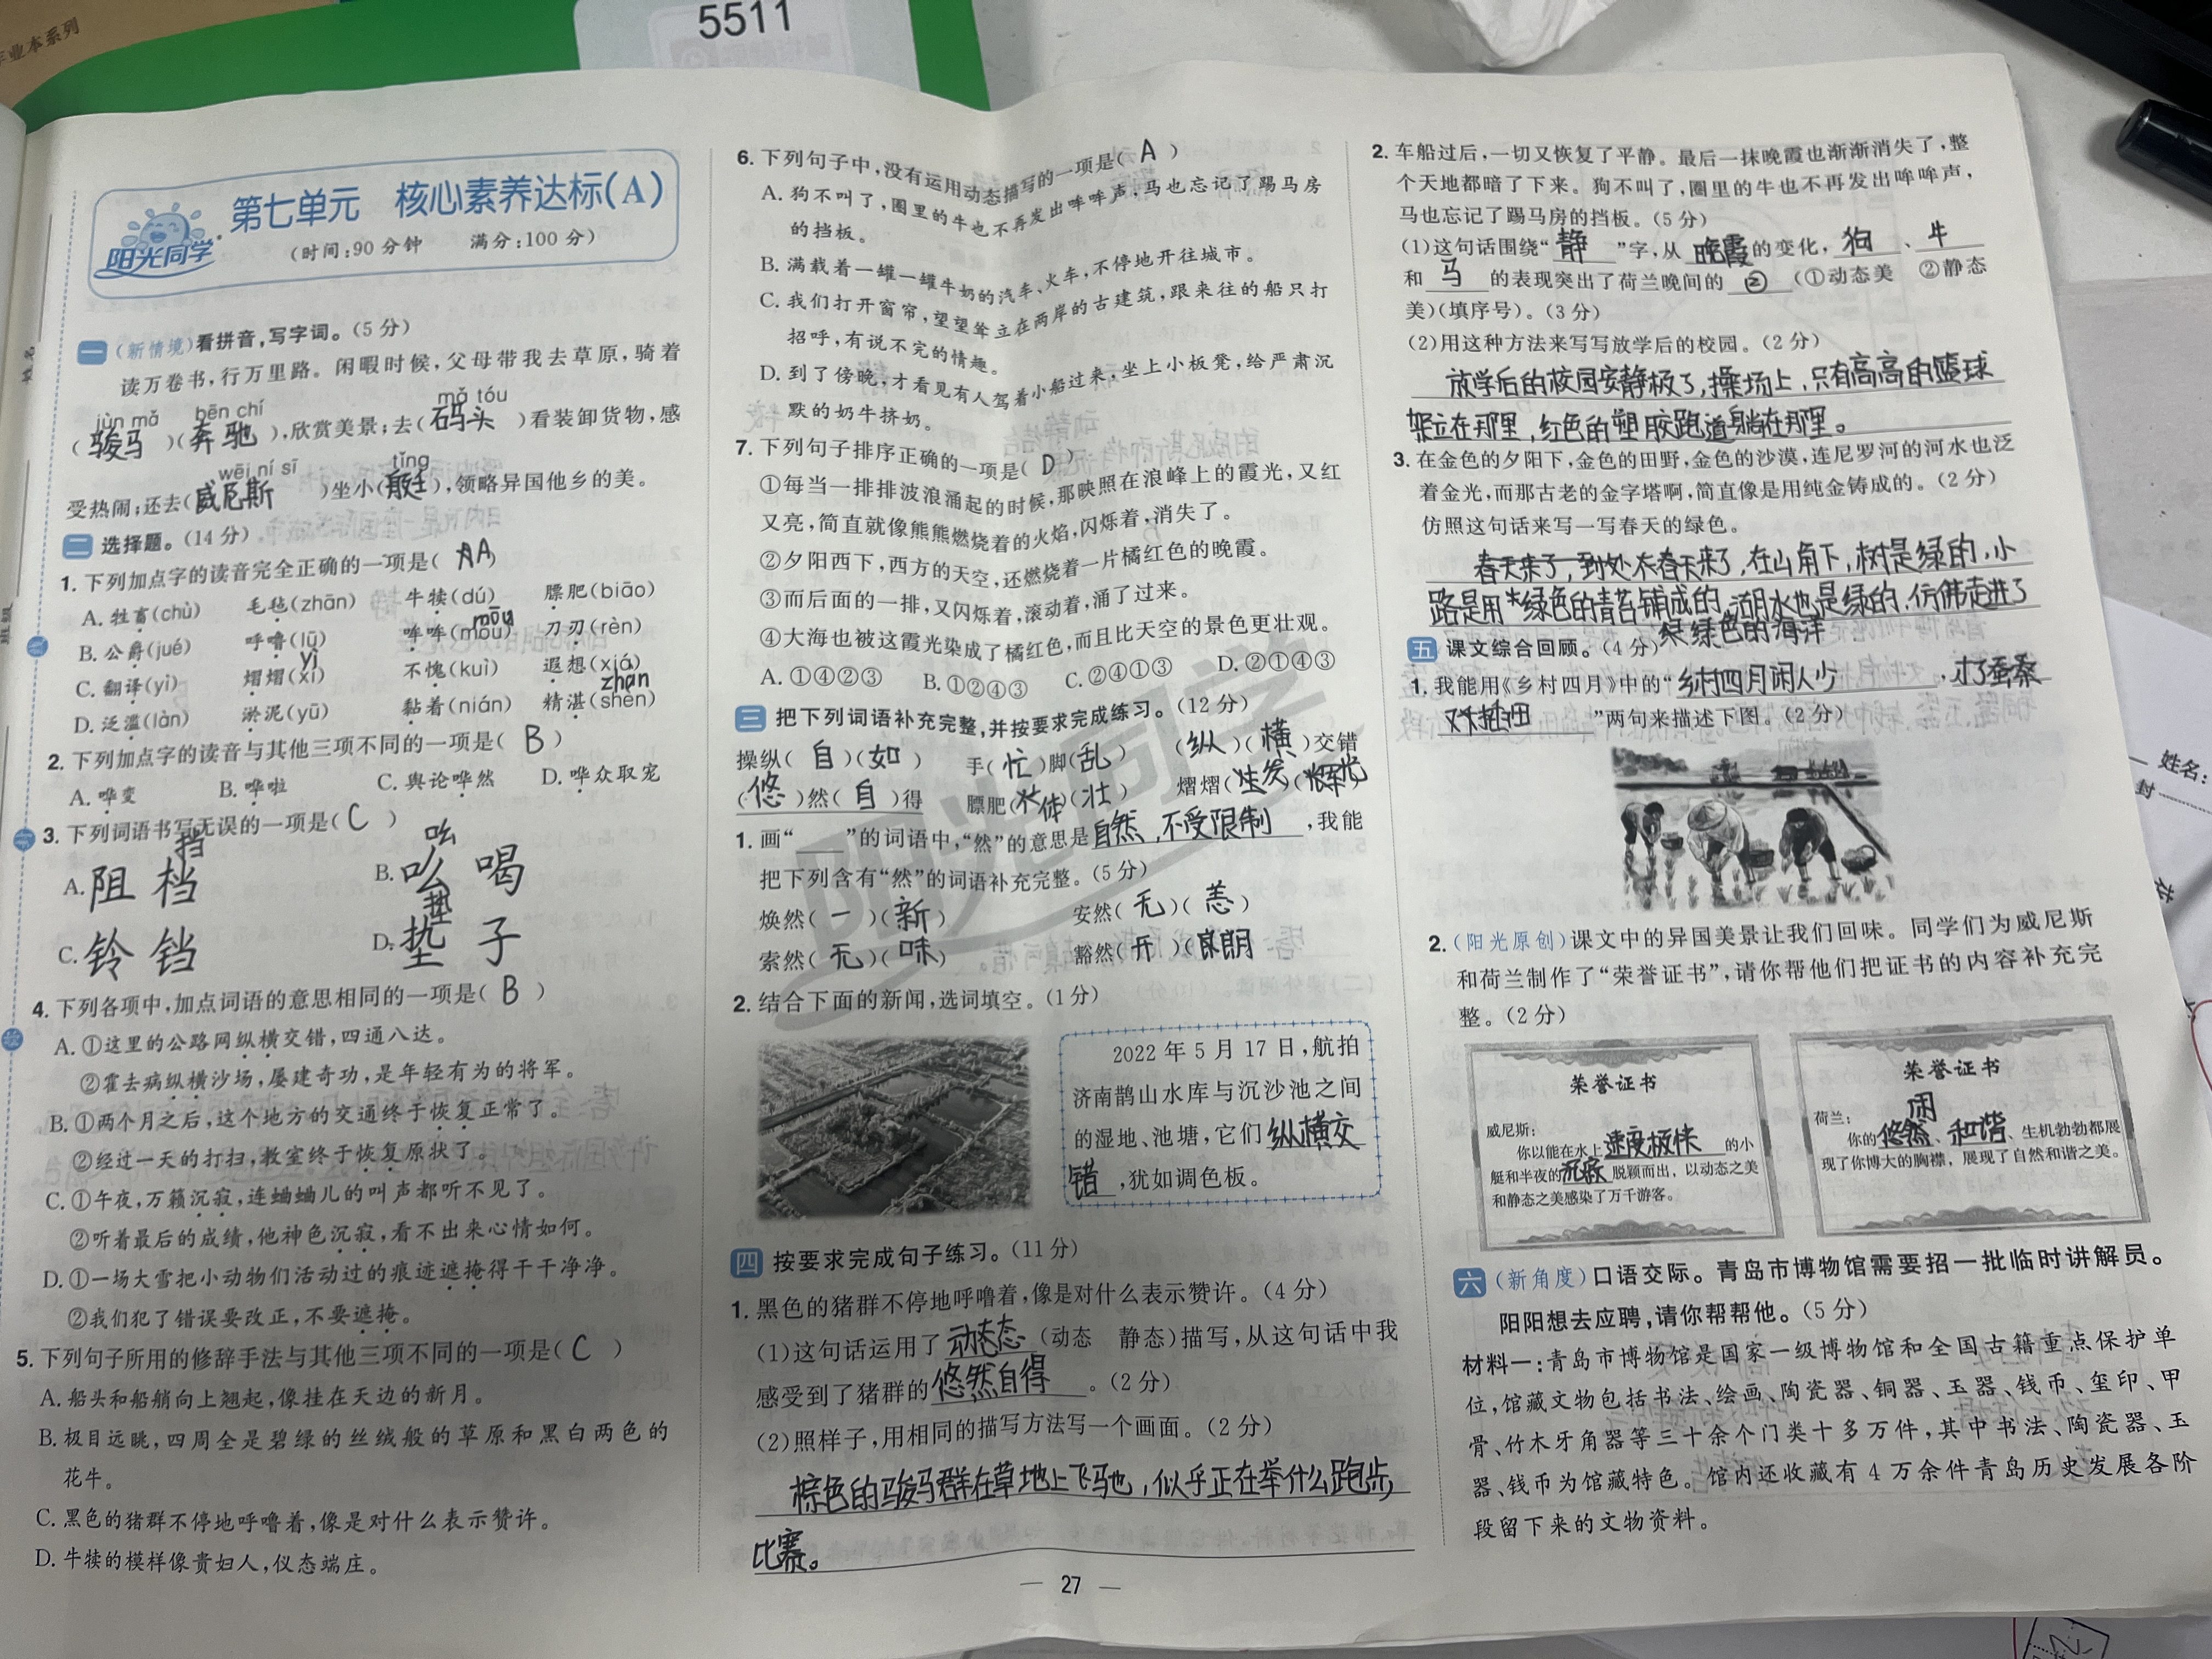 作业本系列
5511
姓名
班级
阳光同学
第七单元 核心素养达标(A)
(时间:90分钟 满分:100分)
一 (新情境)看拼音,写字词。(5分)
读万卷书,行万里路。闲暇时候,父母带我去草原,骑着
jùn mǎ bēn chí mǎ tóu
(骏马)(奔驰),欣赏美景;去(码头)看装卸货物,感
wēi ní sī tǐng
受热闹;还去(威尼斯)坐小(艇),领略异国他乡的美。
二 选择题。(14分)
1. 下列加点字的读音完全正确的一项是( A )
A. 牲畜(chù) 毛毡(zhān) 牛犊(dú) 膘肥(biāo)
mōu
B. 公爵(jué) 呼噜(lū) 哞哞(mōu) 刀刃(rèn)
yì
C. 翻译(yì) 熠熠(xí) 不愧(kuì) 遐想(xiá)
zhàn
D. 泛滥(làn) 淤泥(yū) 黏着(nián) 精湛(shèn)
2. 下列加点字的读音与其他三项不同的一项是( B )
A. 哗变 B. 哗啦 C. 舆论哗然 D. 哗众取宠
3. 下列词语书写无误的一项是( C )
挡 吆
A. 阻档 B. 吆喝
垫
C. 铃铛 D. 垫子
4. 下列各项中,加点词语的意思相同的一项是( B )
A. ①这里的公路网纵横交错,四通八达。
②霍去病纵横沙场,屡建奇功,是年轻有为的将军。
B. ①两个月之后,这个地方的交通终于恢复正常了。
②经过一天的打扫,教室终于恢复原状了。
C. ①午夜,万籁沉寂,连蛐蛐儿的叫声都听不见了。
②听着最后的成绩,他神色沉寂,看不出来心情如何。
D. ①一场大雪把小动物们活动过的痕迹遮掩得干干净净。
②我们犯了错误要改正,不要遮掩。
5. 下列句子所用的修辞手法与其他三项不同的一项是( C )
A. 船头和船艄向上翘起,像挂在天边的新月。
B. 极目远眺,四周全是碧绿的丝绒般的草原和黑白两色的
花牛。
C. 黑色的猪群不停地呼噜着,像是对什么表示赞许。
D. 牛犊的模样像贵妇人,仪态端庄。
6. 下列句子中,没有运用动态描写的一项是( A )
A. 狗不叫了,圈里的牛也不再发出哞哞声,马也忘记了踢马房
的挡板。
B. 满载着一罐一罐牛奶的汽车、火车,不停地开往城市。
C. 我们打开窗帘,望望耸立在两岸的古建筑,跟来往的船只打
招呼,有说不完的情趣。
D. 到了傍晚,才看见有人驾着小船过来,坐上小板凳,给严肃沉
默的奶牛挤奶。
7. 下列句子排序正确的一项是( D )
①每当一排排波浪涌起的时候,那映照在浪峰上的霞光,又红
又亮,简直就像熊熊燃烧着的火焰,闪烁着,消失了。
②夕阳西下,西方的天空,还燃烧着一片橘红色的晚霞。
③而后面的一排,又闪烁着,滚动着,涌了过来。
④大海也被这霞光染成了橘红色,而且比天空的景色更壮观。
A. ①④②③ B. ①②④③ C. ②④①③ D. ②①④③
三 把下列词语补充完整,并按要求完成练习。(12分)
操纵( 自 )( 如 ) 手( 忙 )脚( 乱 ) ( 纵 )( 横 )交错
( 悠 )然( 自 )得 膘肥( 体 )( 壮 ) 熠熠( 生 )( 辉 )
1. 画“ ”的词语中,“然”的意思是自然,不受限制,我能
把下列含有“然”的词语补充完整。(5分)
焕然( 一 )( 新 ) 安然( 无 )( 恙 )
索然( 无 )( 味 ) 豁然( 开 )( 朗 )
2. 结合下面的新闻,选词填空。(1分)
2022年5月17日,航拍
济南鹊山水库与沉沙池之间
的湿地、池塘,它们纵横交
错,犹如调色板。
四 按要求完成句子练习。(11分)
1. 黑色的猪群不停地呼噜着,像是对什么表示赞许。(4分)
(1)这句话运用了动态(动态 静态)描写,从这句话中我
感受到了猪群的悠然自得。(2分)
(2)照样子,用相同的描写方法写一个画面。(2分)
棕色的骏马群在草地上飞驰,似乎正在举什么跑步
比赛。
27
2. 车船过后,一切又恢复了平静。最后一抹晚霞也渐渐消失了,整
个天地都暗了下来。狗不叫了,圈里的牛也不再发出哞哞声,
马也忘记了踢马房的挡板。(5分)
(1)这句话围绕“静”字,从晚霞的变化,狗、牛
和马的表现突出了荷兰晚间的②(①动态美 ②静态
美)(填序号)。(3分)
(2)用这种方法来写写放学后的校园。(2分)
放学后的校园安静极了,操场上,只有高高的篮球
架立在那里,红色的塑胶跑道躺在那里。
3. 在金色的夕阳下,金色的田野,金色的沙漠,连尼罗河的河水也泛
着金光,而那古老的金字塔啊,简直像是用纯金铸成的。(2分)
仿照这句话来写一写春天的绿色。
春天来了,在山角下,树是绿的,小
路是用绿色的青苔铺成的,湖水也是绿的,仿佛走进了
绿色的海洋
五 课文综合回顾。(4分)
1. 我能用《乡村四月》中的“乡村四月闲人少,才了蚕桑
又插田”两句来描述下图。(2分)
2. (阳光原创)课文中的异国美景让我们回味。同学们为威尼斯
和荷兰制作了“荣誉证书”,请你帮他们把证书的内容补充完
整。(2分)
荣誉证书
威尼斯:
你以能在水上速度极快的小
艇和半夜的沉寂脱颖而出,以动态之美
和静态之美感染了万千游客。
荣誉证书
荷兰:
闲
你的悠然、和谐、生机勃勃都展
现了你博大的胸襟,展现了自然和谐之美。
六 (新角度)口语交际。青岛市博物馆需要招一批临时讲解员。
阳阳想去应聘,请你帮帮他。(5分)
材料一:青岛市博物馆是国家一级博物馆和全国古籍重点保护单
位,馆藏文物包括书法、绘画、陶瓷器、铜器、玉器、钱币、玺印、甲
骨、竹木牙角器等三十余个门类十多万件,其中书法、陶瓷器、玉
器、钱币为馆藏特色。馆内还收藏有4万余件青岛历史发展各阶
段留下来的文物资料。
姓名:
封